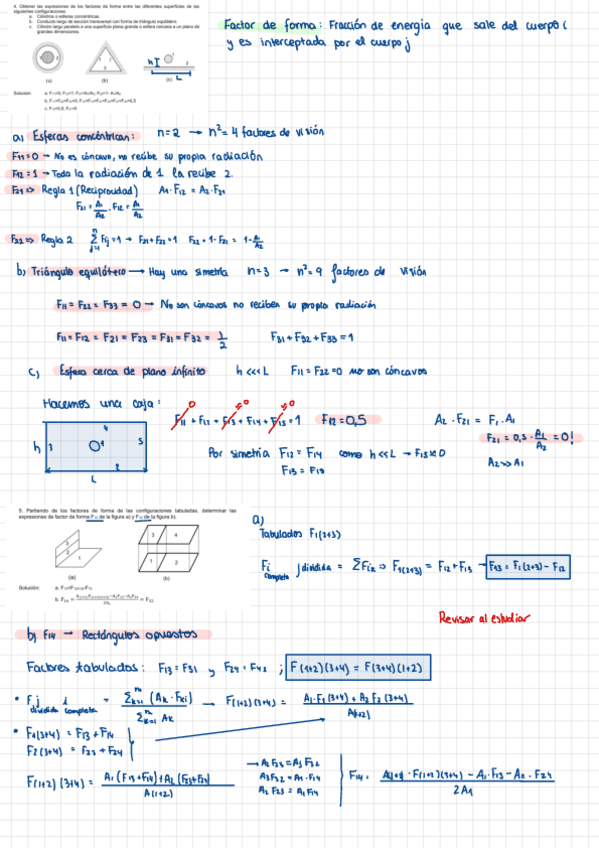 4. Obtener las expresiones de los factores de forma entre las diferentes superficies de las siguientes configuraciones:
a. Cilindros o esferas concéntricas.
b. Conducto largo de sección transversal con forma de triángulo equilátero.
c. Cilindro largo paralelo a una superficie plana grande o esfera cercana a un plano de grandes dimensiones.
(a) (b) (c)
h
L
Solución:
Factor de forma: Fracción de energía que sale del cuerpo i
y es interceptada por el cuerpo j
a) Esferas concéntricas: n=2 → n²=4 factores de visión
F11=0 → No es cóncavo, no recibe su propia radiación
F12=1 → Toda la radiación de 1 la recibe 2.
F21 ⇒ Regla 1 (Reciprocidad) A1·F12 = A2·F21
F21 = A1/A2 · F12 = A1/A2
F22 ⇒ Regla 2 Σ Fij = 1 → F21+F22=1 F22=1-F21 = 1-A1/A2
b) Triángulo equilátero → Hay una simetría n=3 → n²=9 factores de visión
F11 = F22 = F33 = 0 → No son cóncavos no reciben su propia radiación
F11 = F12 = F21 = F23 = F31 = F32 = 1/2 F31+F32+F33=1
c) Esfera cerca de plano infinito h <<< L F11 = F22 =0 no son cóncavos
Hacemos una caja: F11 + F12 + F13 + F14 + F15 = 1 F12=0,5 A2·F21 = F1·A1
F21 = 0,5·A1/A2 = 0!
A2>>A1
h 3 1 4 5 2 L
Por simetría F12 = F14 como h<<L → F13≈0
F13 = F15
5. Partiendo de los factores de forma de las configuraciones tabuladas, determinar las expresiones de factor de forma F13 de la figura a) y F14 de la figura b).
3 2 1 3 4 1 2
(a) (b)
Solución: a. F13=F1(2+3)-F12
a)
Tabulados F1(2+3)
Fi completo j dividida = ΣFik ⇒ F1(2+3) = F12+F13 → F13 = F1(2+3) - F12
Revisar al estudiar
b) F14 → Rectángulos opuestos
Factores tabulados: F13=F31 y F24=F42 ; F(1+2)(3+4) = F(3+4)(1+2)
• F j dividida i completa = Σk=1 n (Ak·Fki) / Σk=1 n Ak → F(1+2)(3+4) = A1·F1(3+4) + A2 F2(3+4) / A(1+2)
• F1(3+4) = F13+F14
F2(3+4) = F23+F24
F(1+2)(3+4) = A1(F13+F14)+A2(F23+F24) / A(1+2)
→ A2 F23 = A3 F32
A3F32 = A1·F14
A2 F23 = A1 F14
F14 = A(1+2)·F(1+2)(3+4) - A1·F13 - A2·F24 / 2A1